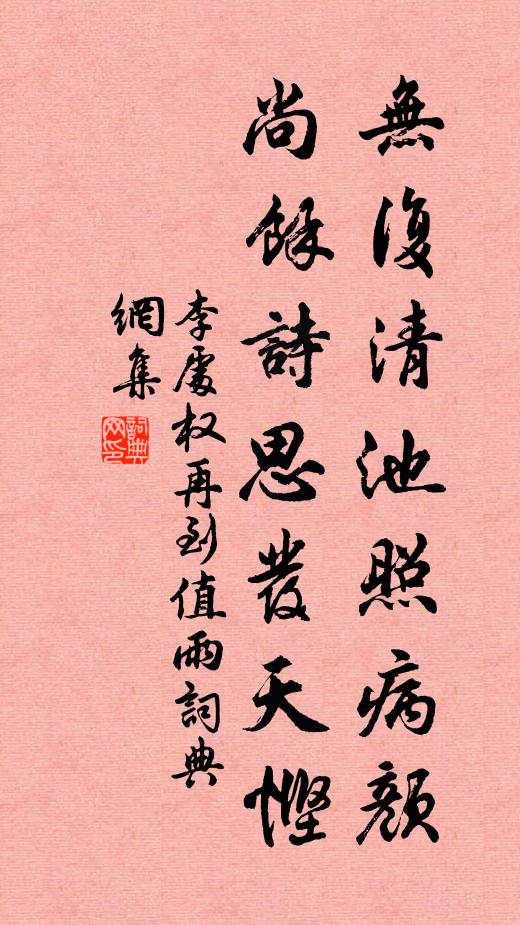 無復清池照病顏
尚餘詩思發天慳
李處权再到值雨詞典
網集
詞典
网印